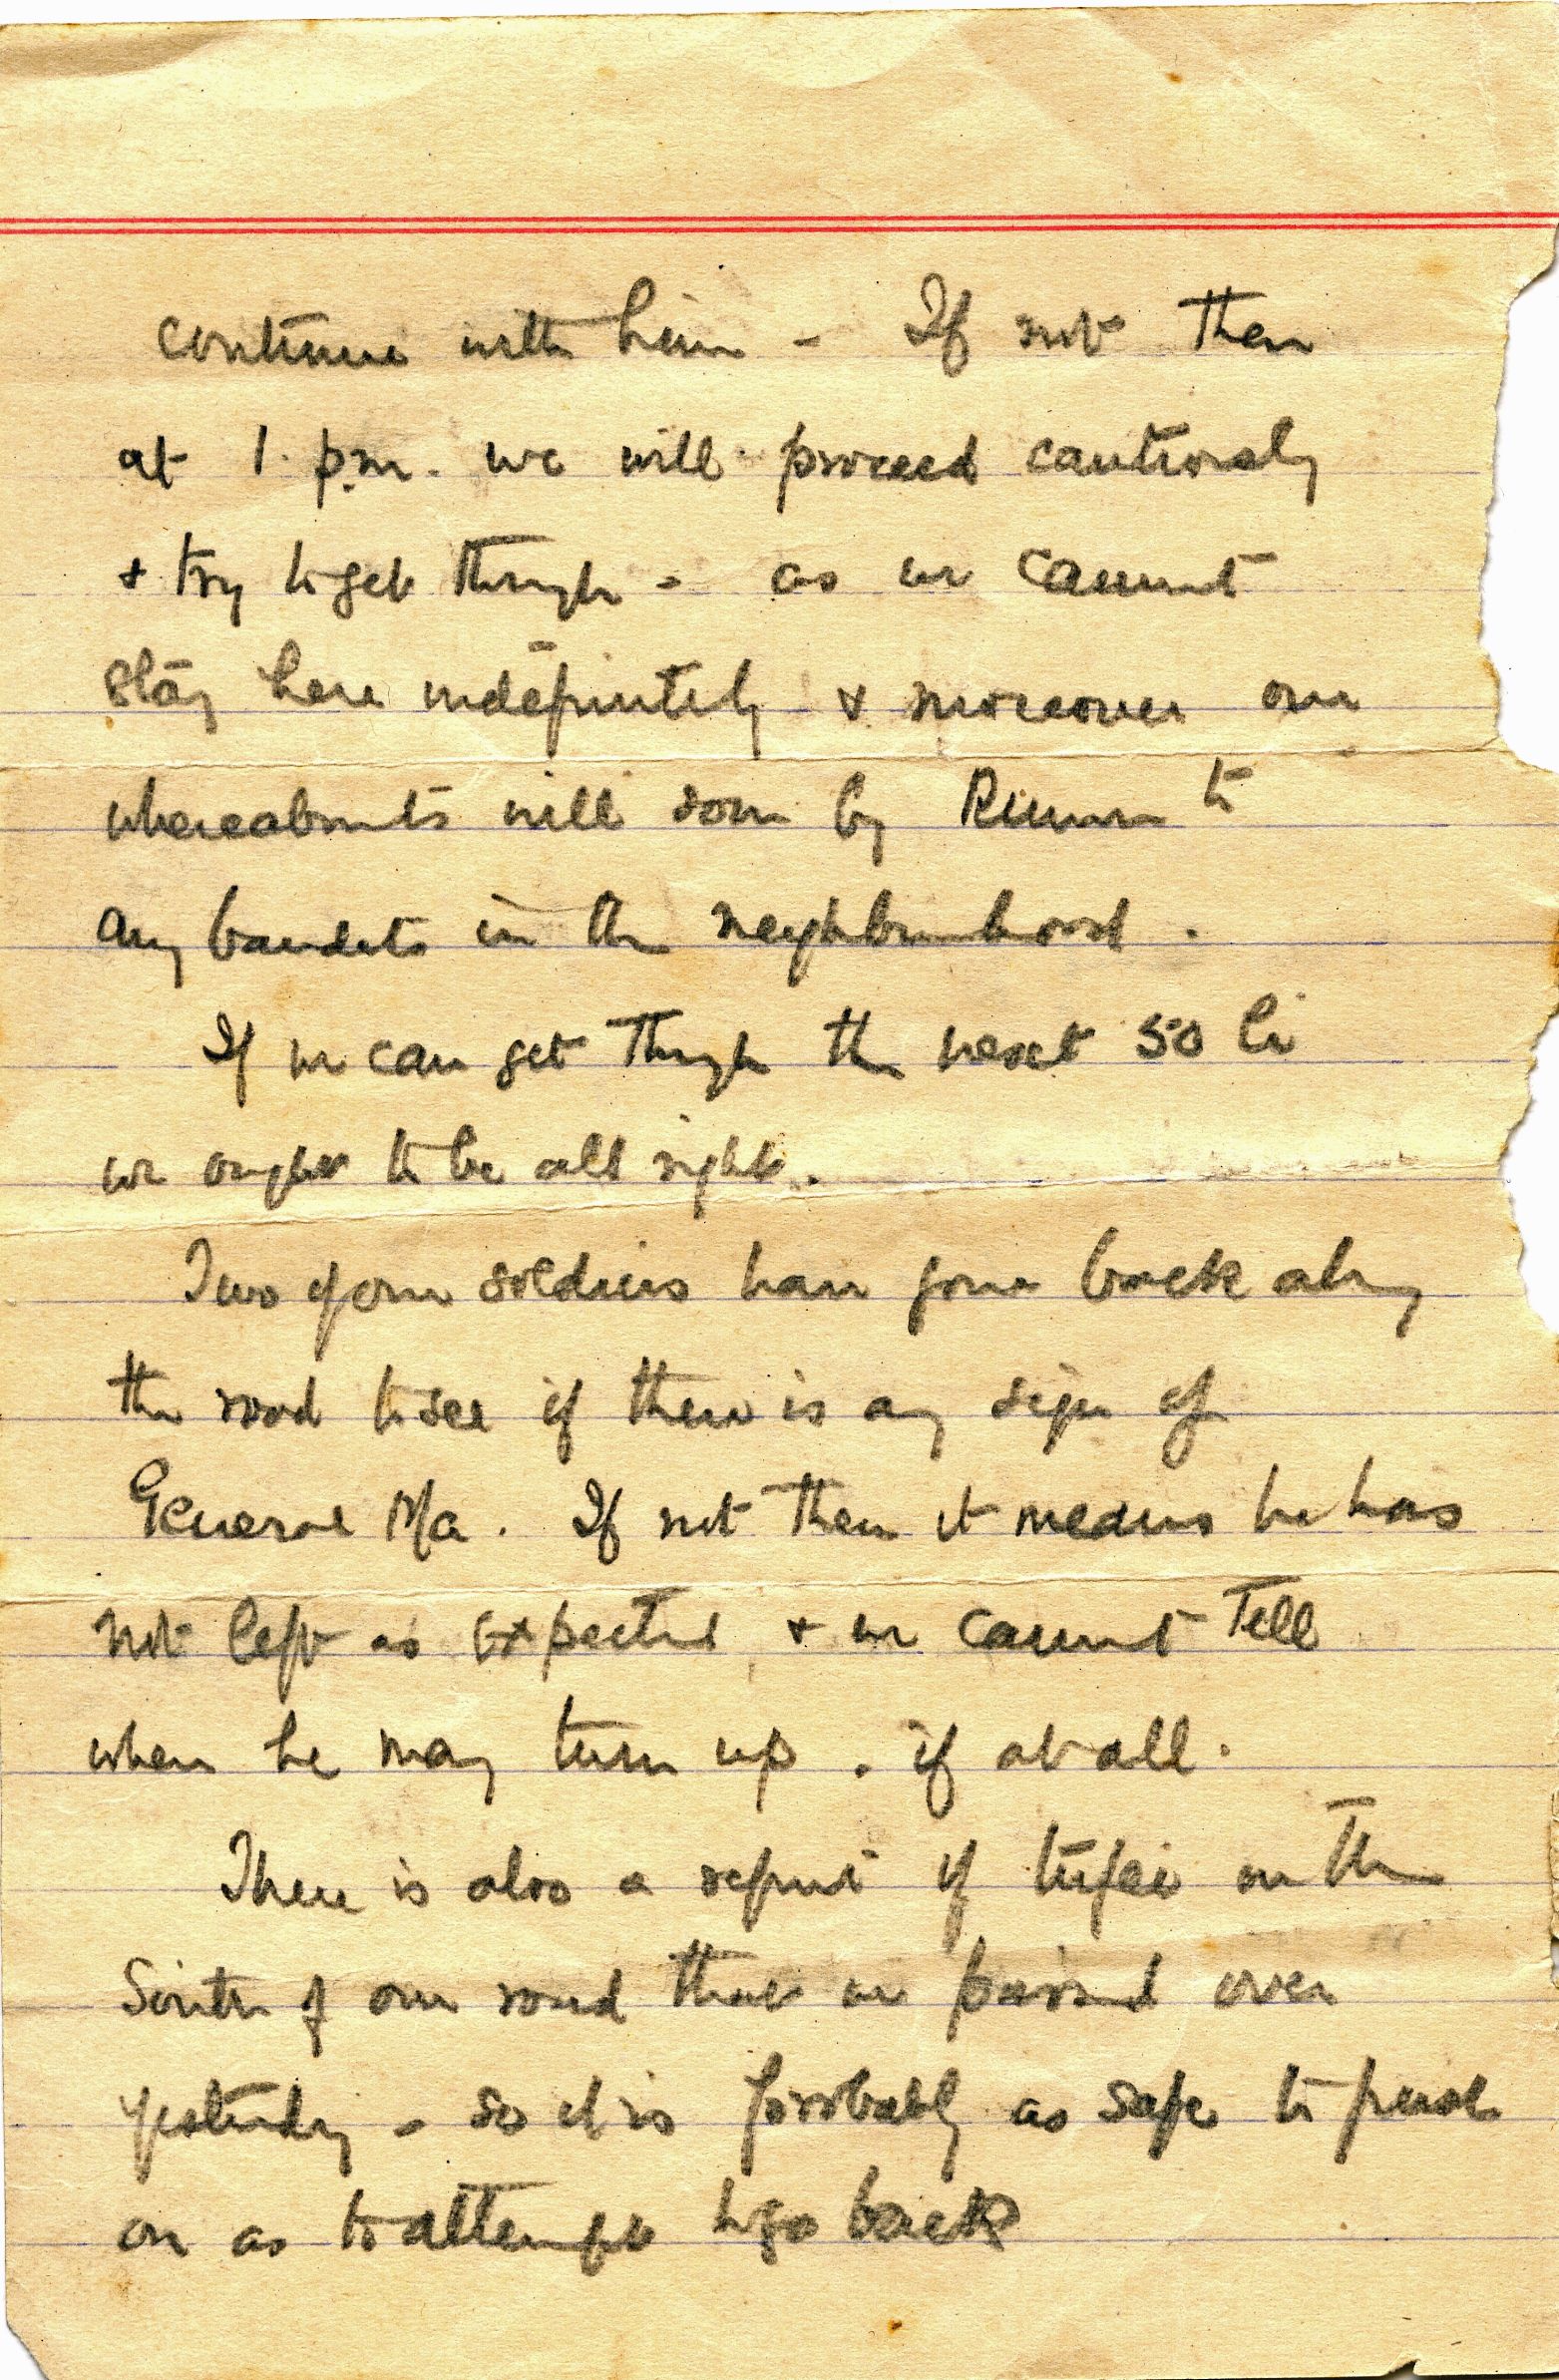 continue with him - If not then
at 1. p.m. we will proceed cautiously
& try to get through - as we cannot
stay here indefinitely & moreover our
whereabouts will soon by known to
any bandits in the neighbourhood.
If we can get through the next 50 li
we ought to be all right.
Two of our soldiers have gone back along
the road to see if there is any sign of
General Ma. If not then it means he has
not left as expected & we cannot tell
when he may turn up - if at all.
There is also a report of tufei on the
South of our road that we passed over
yesterday - so it is probably as safe to push
on as to attempt to go back